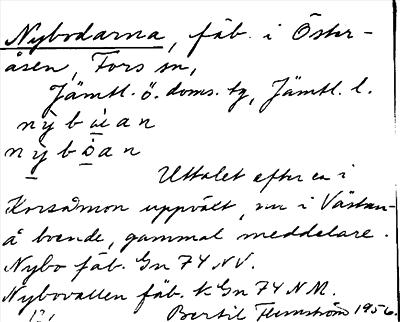 Nybodarna, fäb. i Öster-
åsen, Fors sn,
Jämtl. ö. doms. tg, Jämtl. l.
nỳbu̇an
nỳbȯan
Uttalet efter en i
Korsåmon uppväxt, nu i Västan-
å boende, gammal meddelare.
Nybo fäb. Gn 74 NV.
Nybovallen fäb. k Gn 74 NM.
Bertil Flemström 1956.